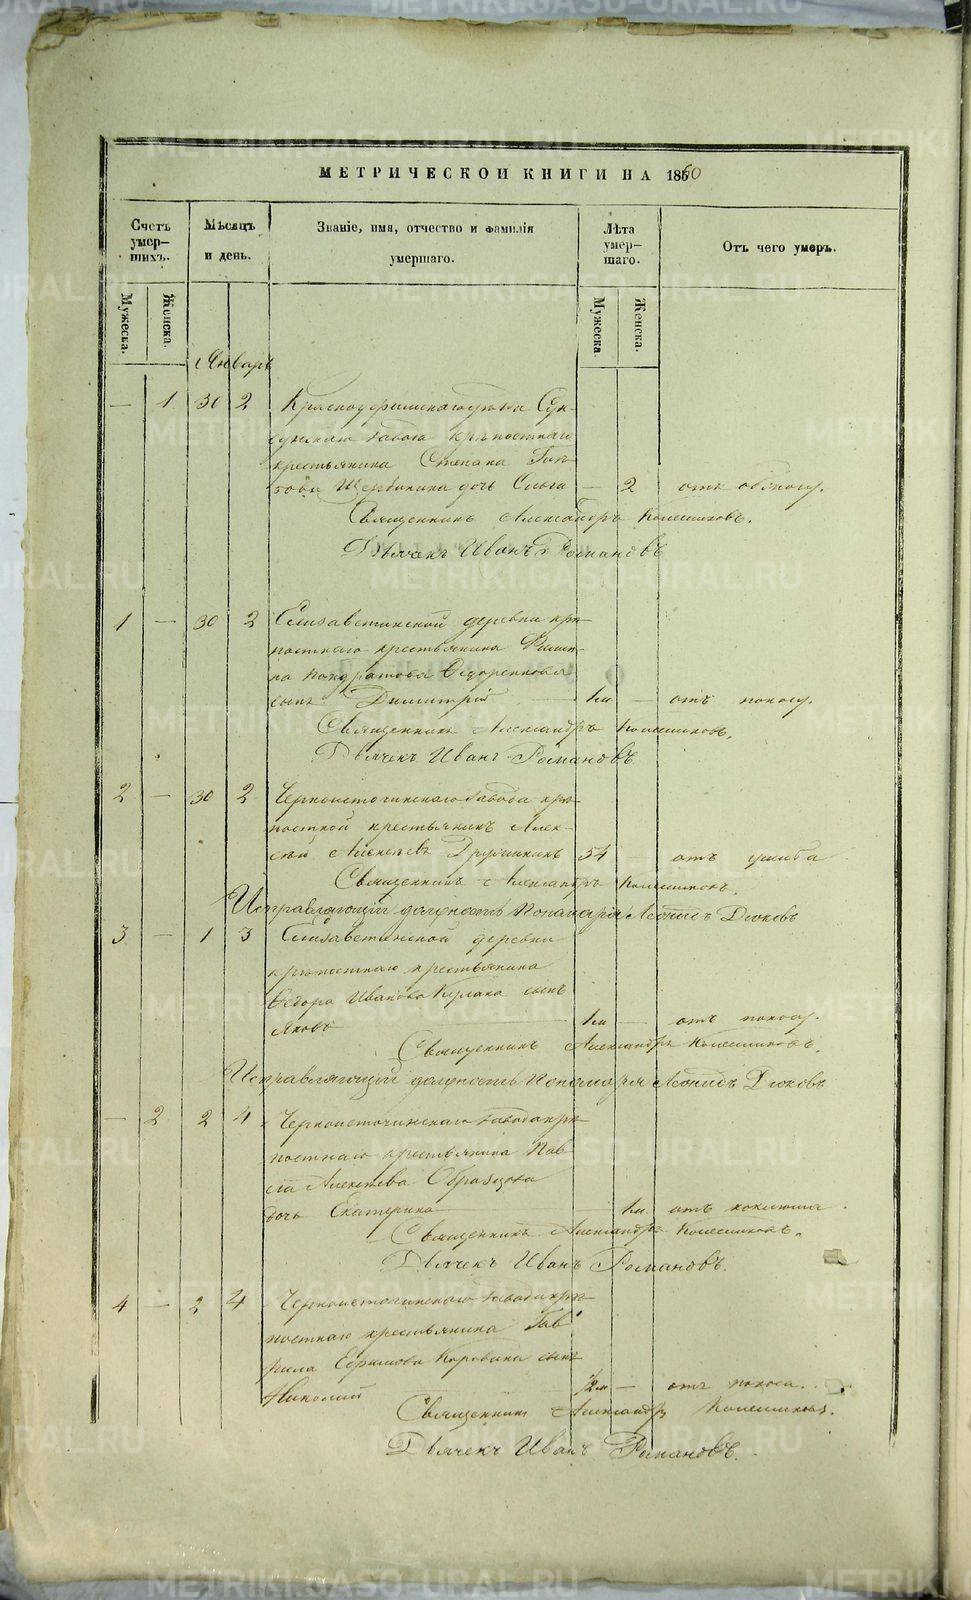 МЕТРИЧЕСКОЙ КНИГИ НА 1860
Счетъ умер- шихъ.
Мѣсяцъ и день.
Званіе, имя, отчество и фамилія умершаго.
Лѣта умер- шаго.
Отъ чего умеръ.
Мужеска. Женска.
Мужеска. Женска.
Январь
— 1 30 2 Красноуфимскаго уѣзда Сук-
сунскаго завода крѣпостнаго
крестьянина Степана
Щербинина дочь Ольга — 2
Священникъ Александръ Колесниковъ.
Дьячекъ Иванъ Романовъ
1 — 30 2 Елизаветинской деревни крѣ-
постнаго крестьянина Филип-
па Кондратова Ѳедоренкова
сынъ Димитрій 1м — отъ поносу.
Священникъ Александръ Колесниковъ.
Дьячекъ Иванъ Романовъ
2 — 30 2 Черноисточинскаго завода крѣ-
постной крестьянинъ Алек-
сѣй Алексѣевъ Дружининъ 54 — отъ ушиба
Священникъ Александръ Колесниковъ.
Исправляющій должность Пономаря Леонидъ Дюковъ
3 — 1 3 Елизаветинской деревни
крѣпостнаго крестьянина
Ѳедора Иванова Кулака сынъ
Яковъ 1м — отъ поносу.
Священникъ Александръ Колесниковъ.
Исправляющій должность Пономаря Леонидъ Дюковъ
— 2 2 4 Черноисточинскаго завода крѣ-
постнаго крестьянина Пав-
ла Алексѣева Образцова
дочь Екатерина — 1м. отъ коклюша.
Священникъ Александръ Колесниковъ.
Дьячекъ Иванъ Романовъ.
4 — 2 4 Черноисточинскаго завода крѣ-
постнаго крестьянина Гав-
рила Ефимова Коровина сынъ
Николай — отъ поноса.
Священникъ Александръ Колесниковъ.
Дьячекъ Иванъ Романовъ.
METRIKI.GASO-URAL.RU